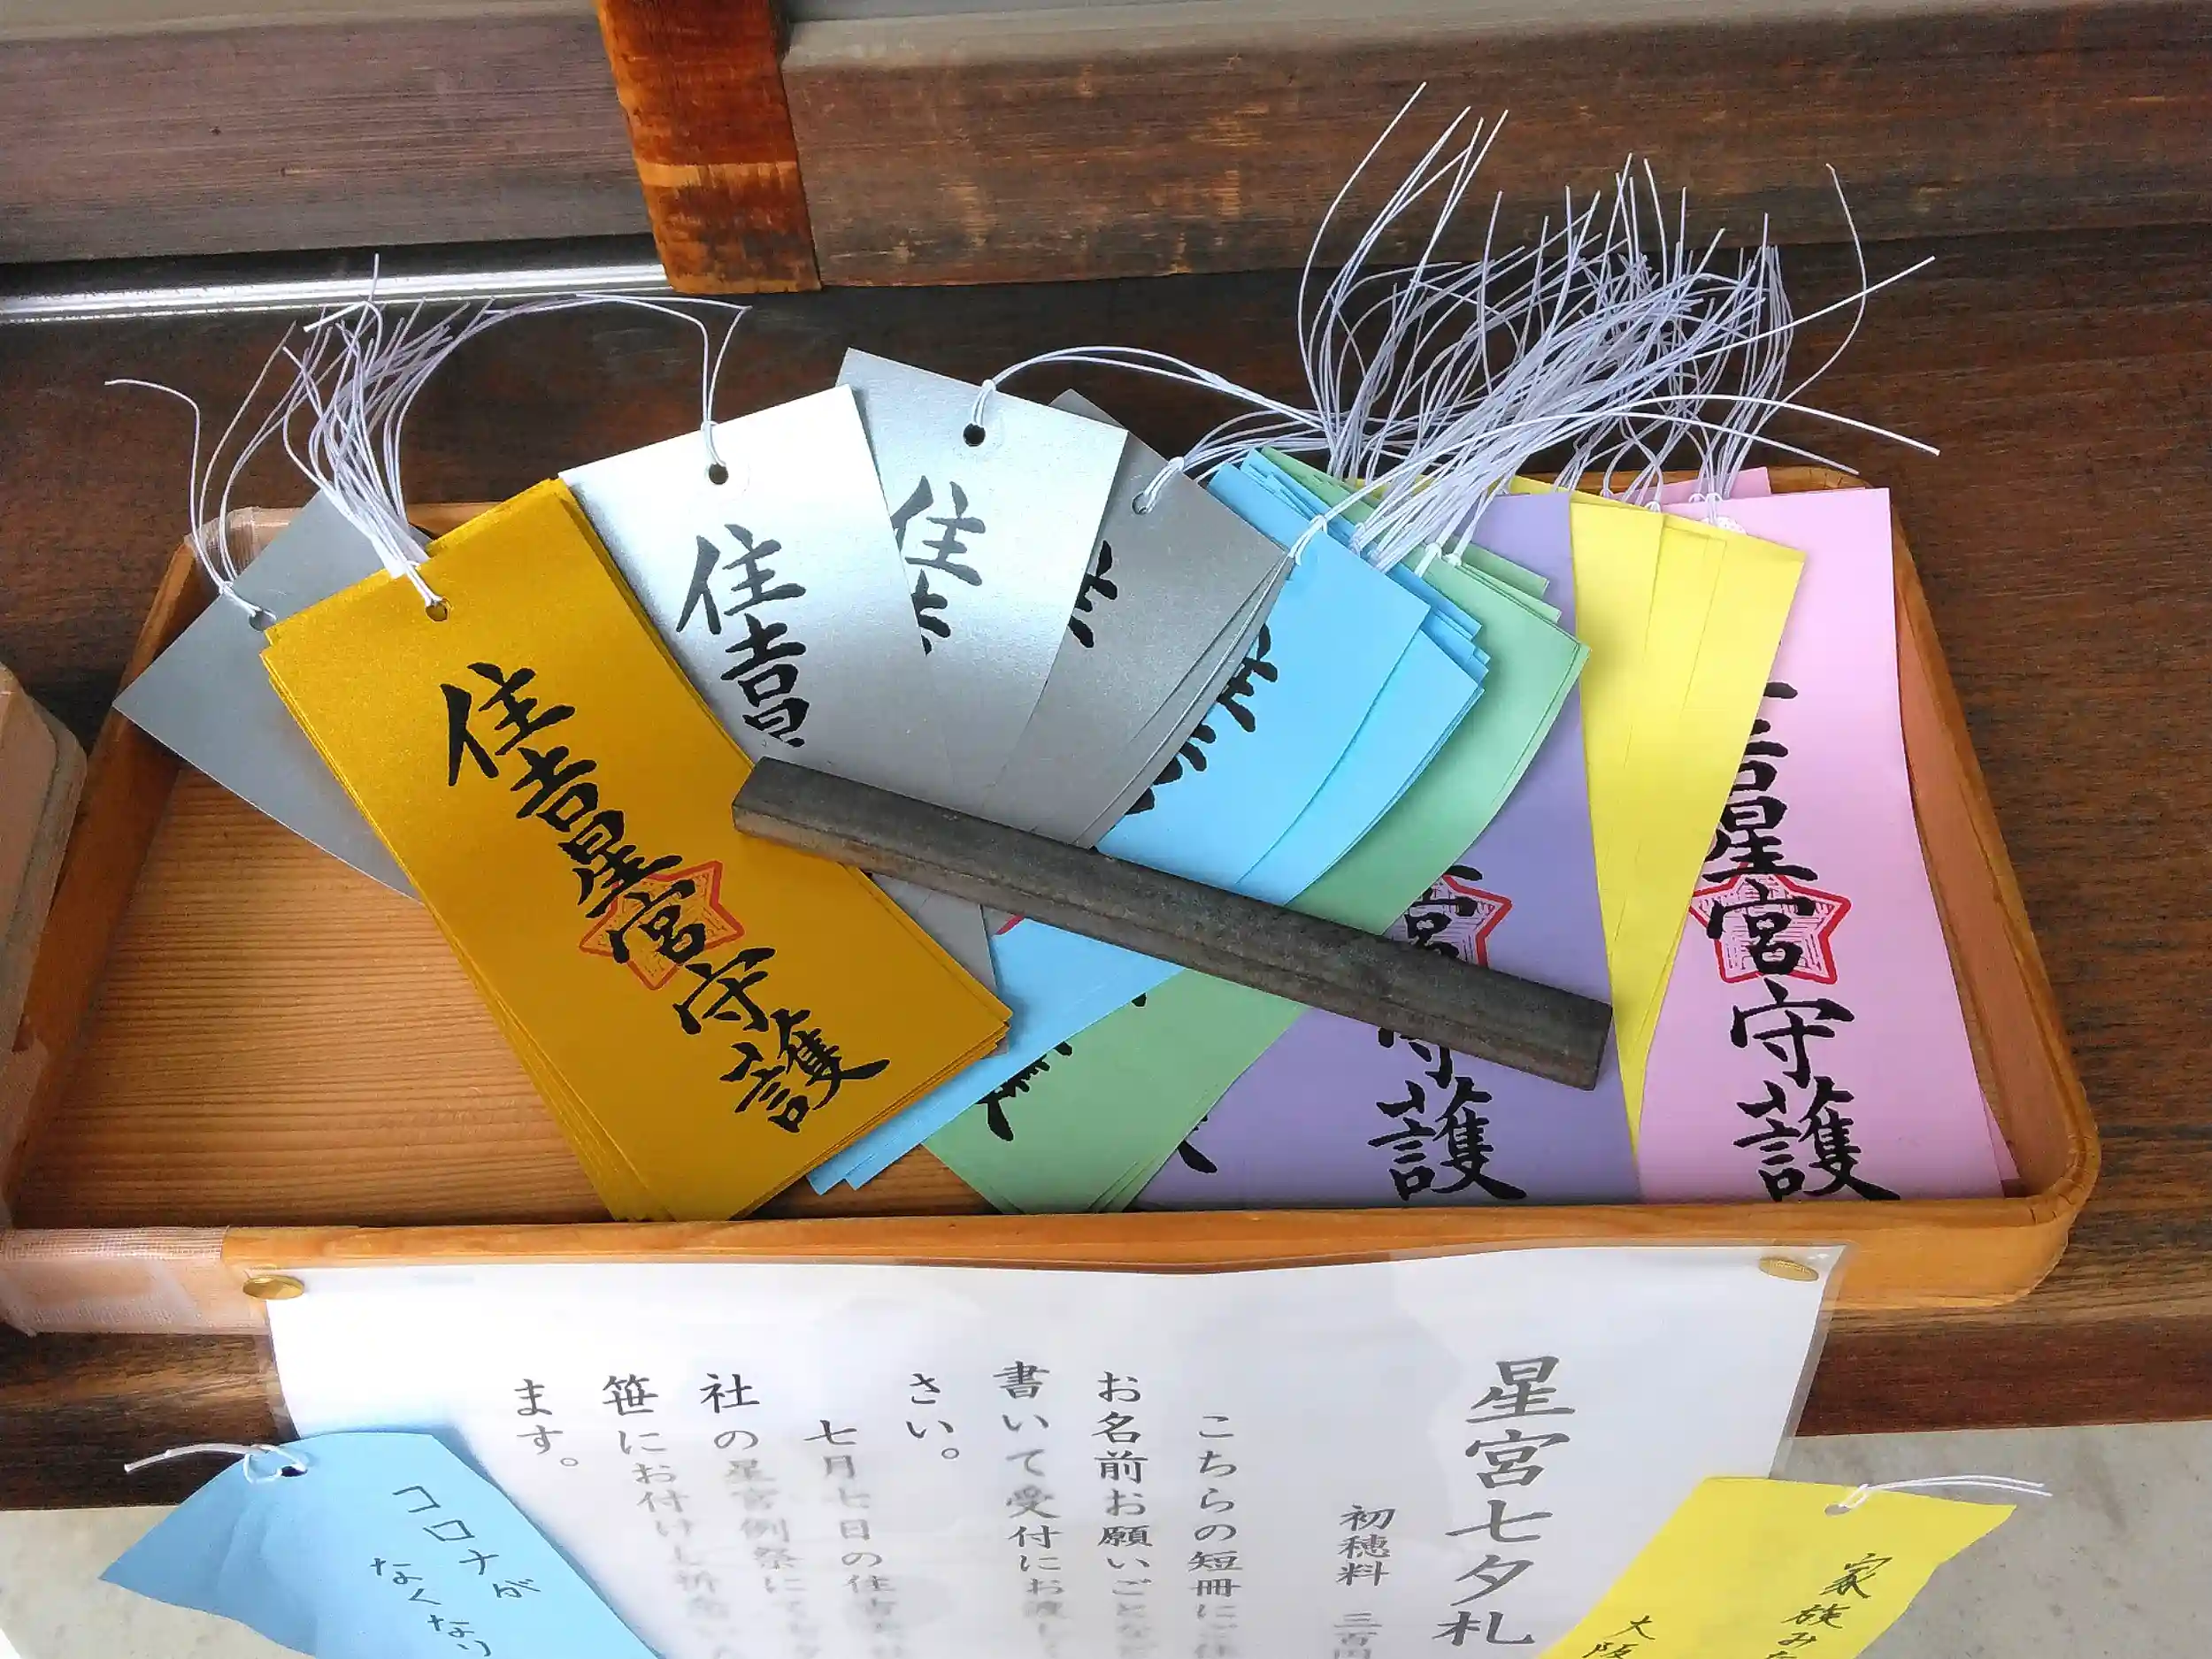 住吉星宮守護
住吉
住吉
宮守護
吉星宮守護
星宮七夕札
初穂料 三百円
こちらの短冊に
お名前お願いごとなど
書いて受付にお渡し
さい。
七月七日の住吉
社の星宮例祭にて
笹にお付けし祈
ます。
コロナが
なくなり
家族み
大阪